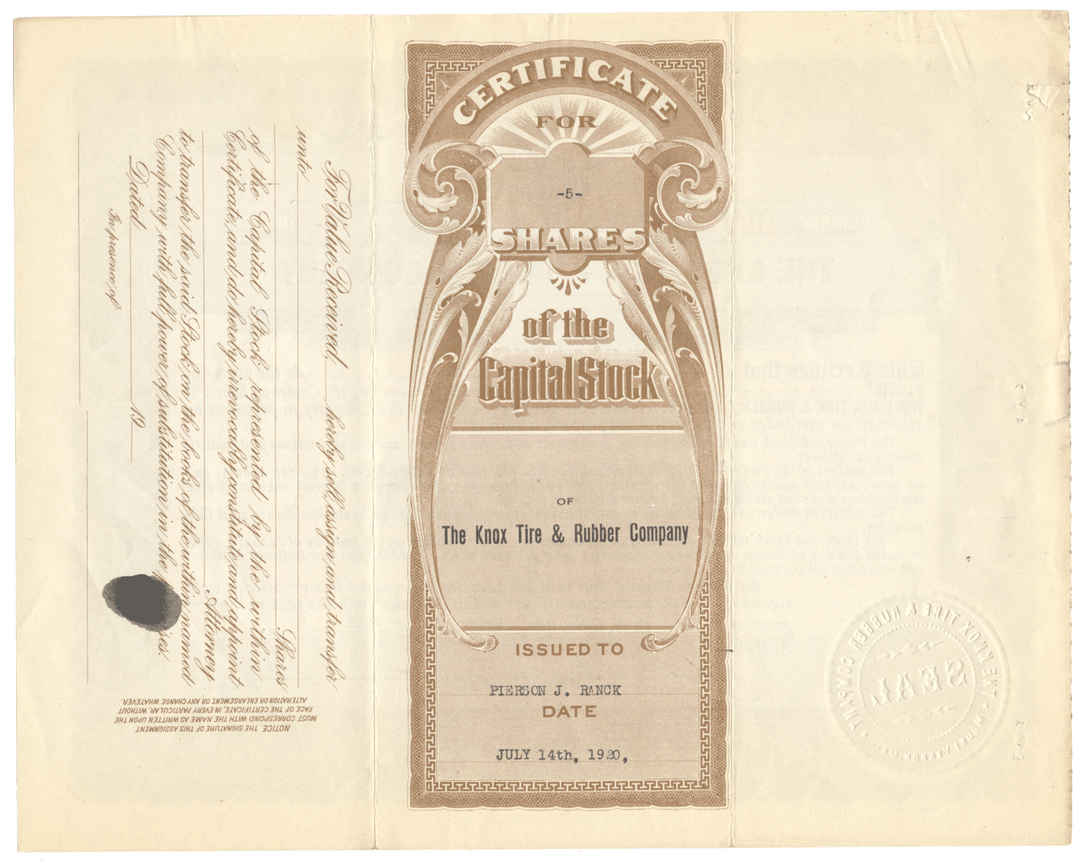 CERTIFICATE
FOR
-5-
SHARES
of the
Capital Stock
OF
The Knox Tire & Rubber Company
ISSUED TO
PIERSON J. RANCK
DATE
JULY 14th, 1920,
For Value Received, hereby sell, assign and transfer
unto
Shares
of the Capital Stock represented by the within
Certificate, and do hereby irrevocably constitute and appoint
Attorney
to transfer the said Stock on the books of the within named
Company with full power of substitution in the
Dated 19
In presence of
NOTICE. THE SIGNATURE OF THIS ASSIGNMENT
MUST CORRESPOND WITH THE NAME AS WRITTEN UPON THE
FACE OF THE CERTIFICATE, IN EVERY PARTICULAR, WITHOUT
ALTERATION OR ENLARGEMENT OR ANY CHANGE WHATEVER.
THE KNOX TIRE & RUBBER COMPANY
SEAL